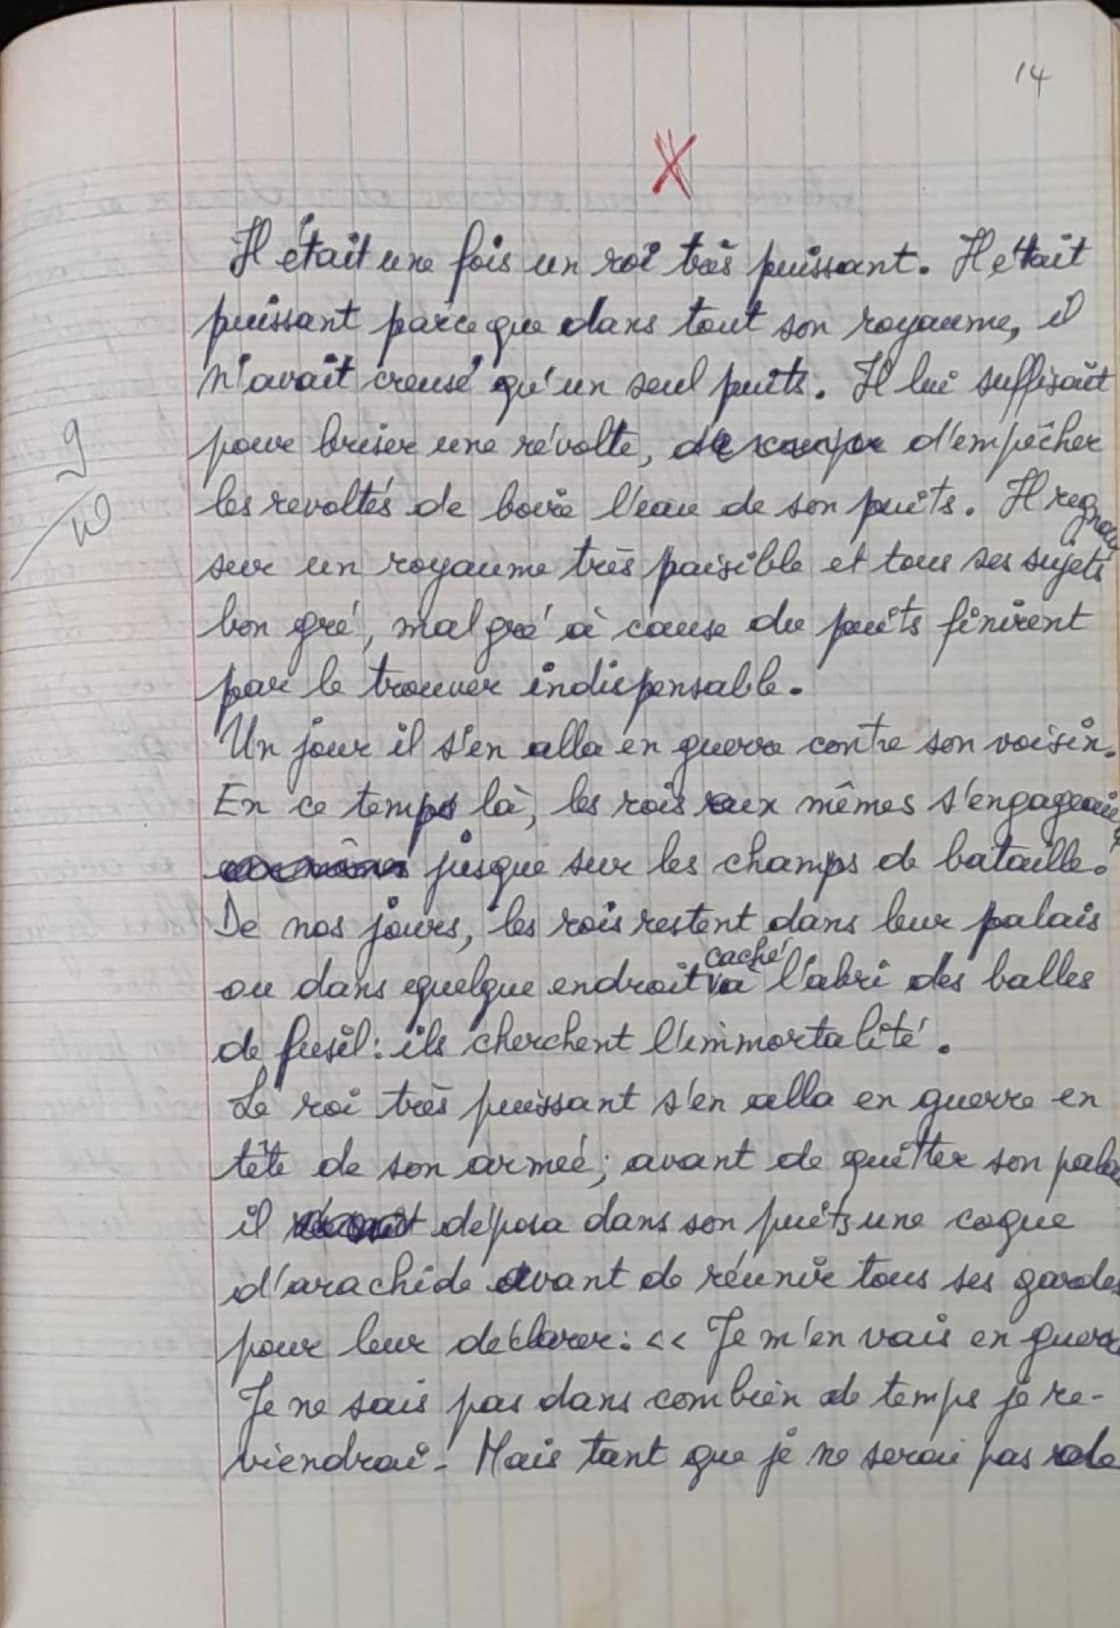 14
X
Il était une fois un roi très puissant. Il était
puissant parce que dans tout son royaume, il
n'avait creusé qu'un seul puits. Il lui suffisait
pour briser une révolte, d'empêcher
les revoltés de boire l'eau de son puits. Il regnait
sur un royaume très paisible et tous ses sujets
bon gré, malgré à cause du puits finirent
par le trouver indispensable.
Un jour il s'en alla en guerre contre son voisin.
En ce temps là, les rois eux mêmes s'engageaient
jusque sur les champs de bataille.
De nos jours, les rois restent dans leur palais
ou dans quelque endroit caché à l'abri des balles
de fusil : ils cherchent l'immortalité.
Le roi très puissant s'en alla en guerre en
tête de son armée ; avant de quitter son palais
il déposa dans son puits une coque
d'arachide avant de réunir tous ses gardes
pour leur déclarer : << Je m'en vais en guerre
Je ne sais pas dans combien de temps je re-
viendrai. Mais tant que je ne serai pas de